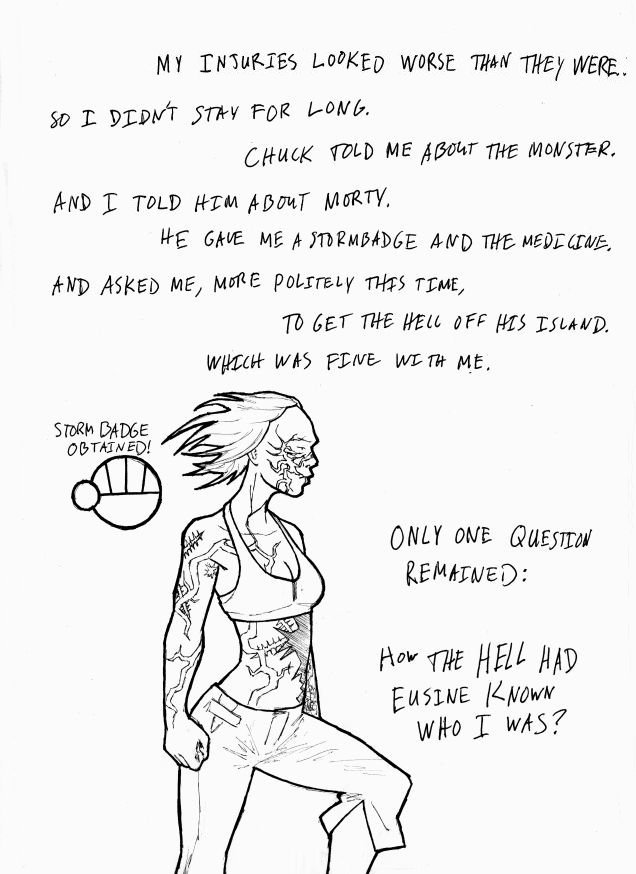 MY INJURIES LOOKED WORSE THAN THEY WERE.
SO I DIDN'T STAY FOR LONG.
CHUCK TOLD ME ABOUT THE MONSTER.
AND I TOLD HIM ABOUT MORTY.
HE GAVE ME A STORMBADGE AND THE MEDICINE.
AND ASKED ME, MORE POLITELY THIS TIME,
TO GET THE HELL OFF HIS ISLAND.
WHICH WAS FINE WITH ME.
STORM BADGE
OBTAINED!
ONLY ONE QUESTION
REMAINED:
HOW THE HELL HAD
EUSINE KNOWN
WHO I WAS?